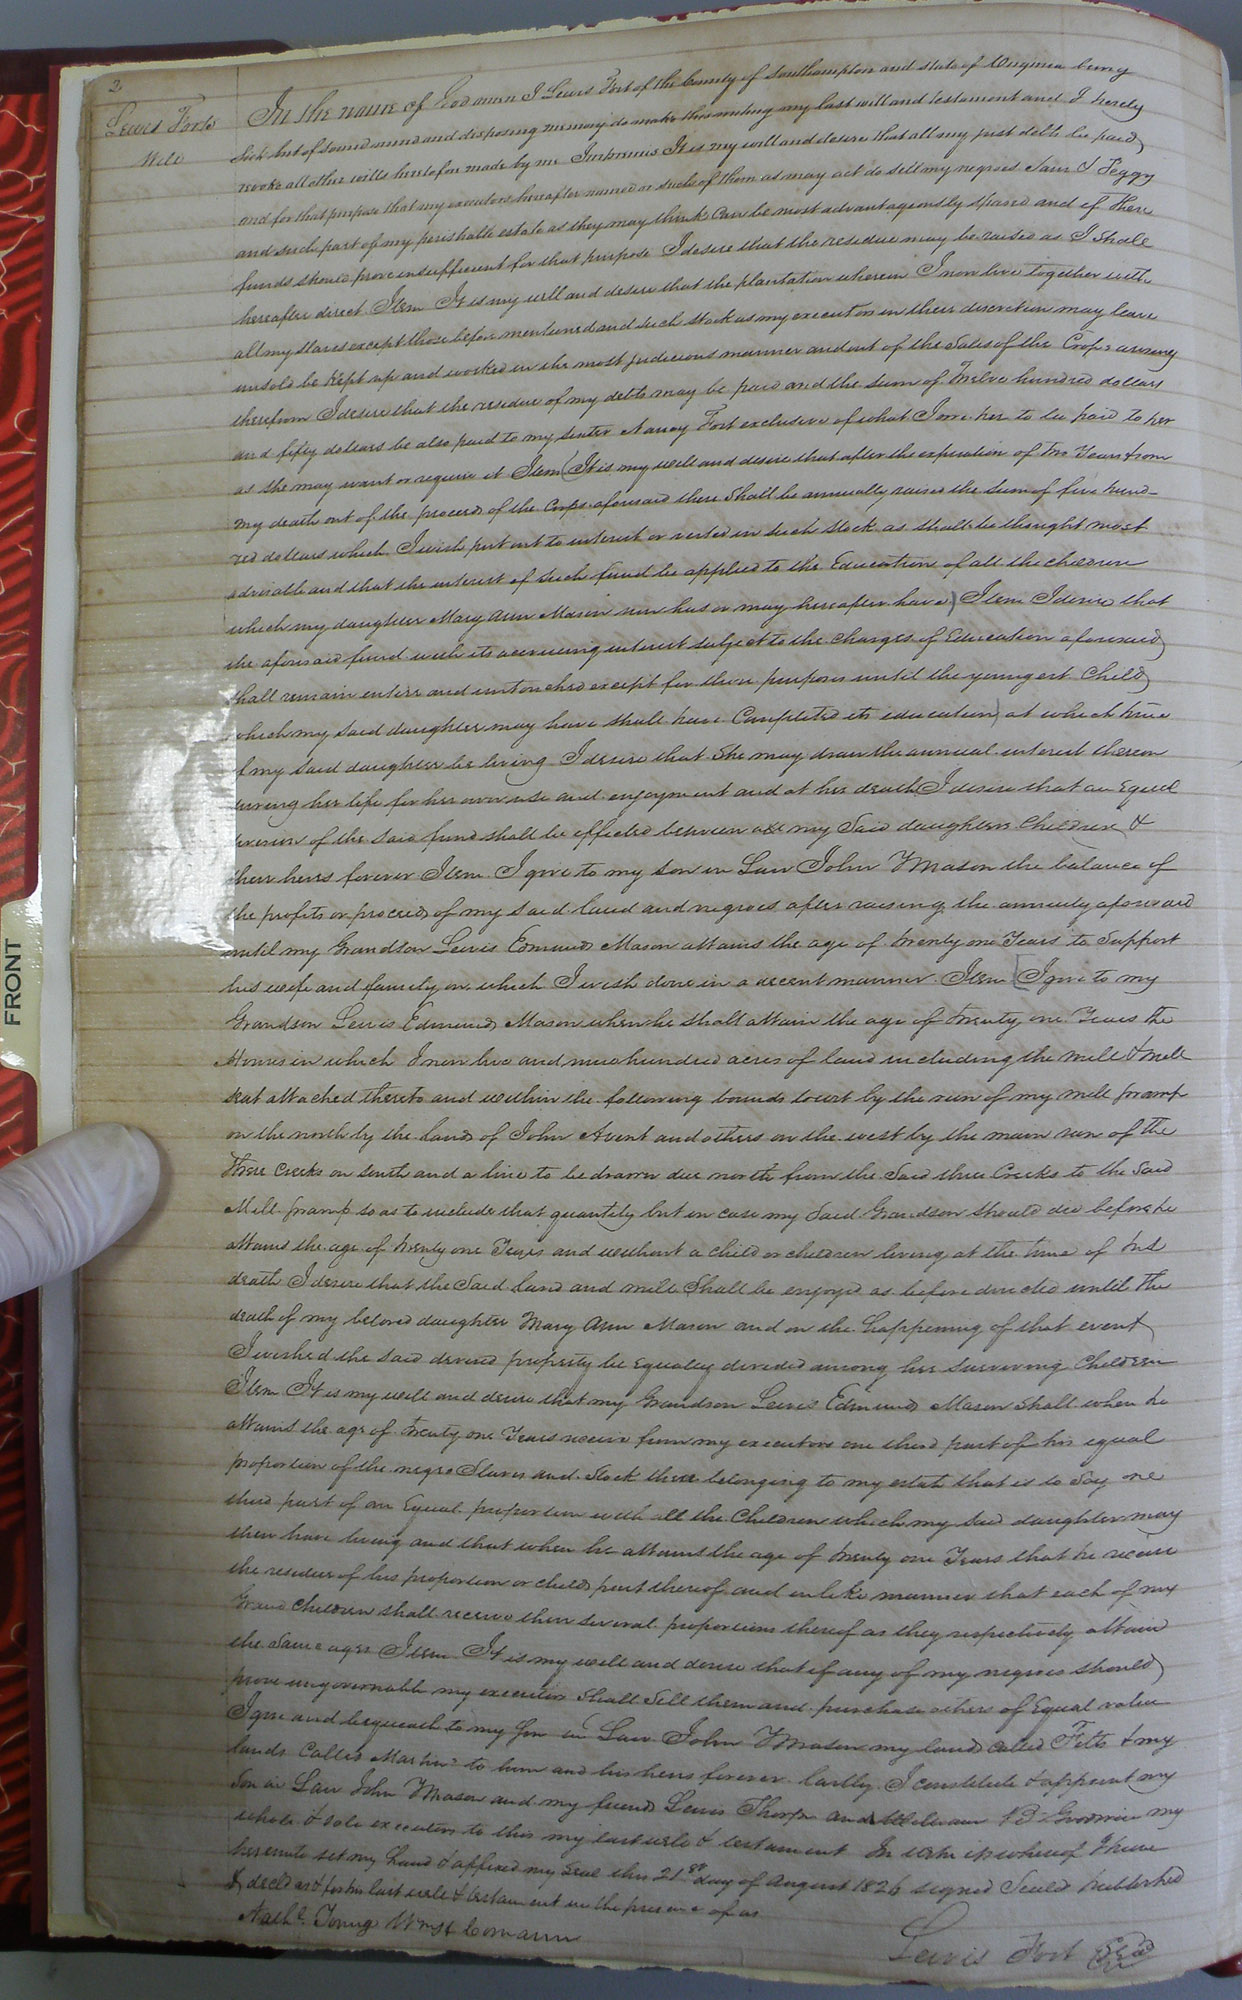 2
Lewis Forts
Will
In the name of God amen I Lewis Fort of the County of Southampton and state of Virginia being
sick but of sound mind and disposing memory do make this writing my last will and testament and I hereby
revoke all other wills heretofore made by me Imprimis It is my will and desire that all my just debts be paid
and for that purpose that my executors hereafter named or such of them as may act do sell my negroes Sam & Peggy
and such part of my perishable estate as they may think can be most advantageously spared and if these
funds should prove insufficient for that purpose I desire that the residue may be raised as I shall
hereafter direct Item It is my will and desire that the plantation whereon I now live together with
all my slaves except those before mentioned and such stock as my executors in their discretion may leave
unsold be kept up and worked in the most judicious manner and out of the sales of the Crops arising
therefrom I desire that the residue of my debts may be paid and the sum of Twelve hundred dollars
and fifty dollars be also paid to my sister Nancy Fort exclusive of what I owe her to be paid to her
as she may want or require it Item (It is my will and desire that after the expiration of two Years from
my death out of the proceeds of the Crops aforesaid there shall be annually raised the sum of five hund-
red dollars which I wish put out to interest or vested in such stock as shall be thought most
advisable and that the interest of such fund be applied to the Education of all the children
which my daughter Mary Ann Mason now has or may hereafter have) Item I desire that
the aforesaid fund with its accruing interest subject to the charges of Education aforesaid
shall remain entire and untouched except for these purposes until the youngest Child
which my said daughter may have shall have Completed its education) at which time
if my said daughter be living I desire that she may draw the annual interest thereon
during her life for her own use and enjoyment and at her death I desire that an Equal
division of the said fund shall be effected between all my said daughters Children &
their heirs forever Item I give to my son in Law John Y Mason the balance of
the profits or proceeds of my said land and negroes after raising the annuity aforesaid
until my Grandson Lewis Edmunds Mason attains the age of twenty one Years to support
his wife and family on which I wish done in a decent manner Item [I give to my
Grandson Lewis Edmunds Mason when he shall attain the age of twenty one Years the
Houses in which I now live and nine hundred acres of land including the mill & mill
seat attached thereto and within the following bounds to wit by the run of my mill swamp
on the north by the lands of John Avent and others on the west by the main run of the
three creeks on south and a line to be drawn due north from the said three Creeks to the said
Mill swamp so as to include that quantity but in case my said Grandson should die before he
attains the age of twenty one Years and without a child or children living at the time of his
death I desire that the said land and mill shall be enjoyed as before directed until the
death of my beloved daughter Mary Ann Mason and on the happening of that event
I wished the said devised property be Equally divided among her surviving Children
Item It is my will and desire that my Grandson Lewis Edmunds Mason shall when he
attains the age of twenty one Years receive from my executors one third part of his equal
proportion of the negro Slaves and Stock there belonging to my estate that is to say one
third part of an Equal proportion with all the Children which my said daughter may
then have living and that when he attains the age of twenty one Years that he receive
the residue of his proportion or childs part thereof and in like manner that each of my
Grand Children shall receive their several proportions thereof as they respectively attain
the same ages Item It is my will and desire that if any of my negroes should
prove ungovernable my executors shall sell them and purchase others of Equal value
I give and bequeath to my son in Law John Y Mason my lands called Felts & my
lands Called Martins to him and his heirs forever lastly I constitute & appoint my
son in Law John Y Mason and my friends Lewis Thorp and William B Goodwin my
whole & sole executors to this my last will & testament In witness whereof I have
hereunto set my hand & affixed my seal this 21st day of August 1826 signed Seald published
& declared as & for his last will & testament in the presence of us
Nathl. Young Wm
Lewis Fort Seal